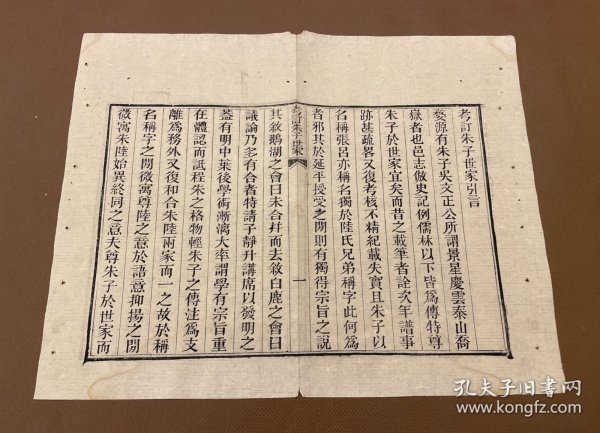 考訂朱子世家引言
婺源有朱子吳文正公所謂景星慶雲泰山喬
嶽者也邑志倣史記例儒林以下皆爲傳特尊
朱子於世家宜矣而昔之載筆者詮次年譜事
跡甚疏畧又復考核不精紀載失實且朱子以
名稱張呂亦稱名獨於陸氏兄弟稱字此何爲
者邪其於延平授受之間則有獨得宗旨之說
考訂朱子世家
一
其敘鵝湖之會曰未合幷而去敘白鹿之會曰
議論乃多有合者特請子靜升講席以發明之
蓋有明中葉後學術漸漓大率謂學有宗旨重
在體認而詆程朱之格物輕朱子之傳注爲支
離爲務外又復和合朱陸兩家而一之故於稱
名稱字之間微寓尊陸之意於語意抑揚之間
微寓朱陸始異終同之意夫尊朱子於世家而
孔夫子旧书网
www.kongfz.com